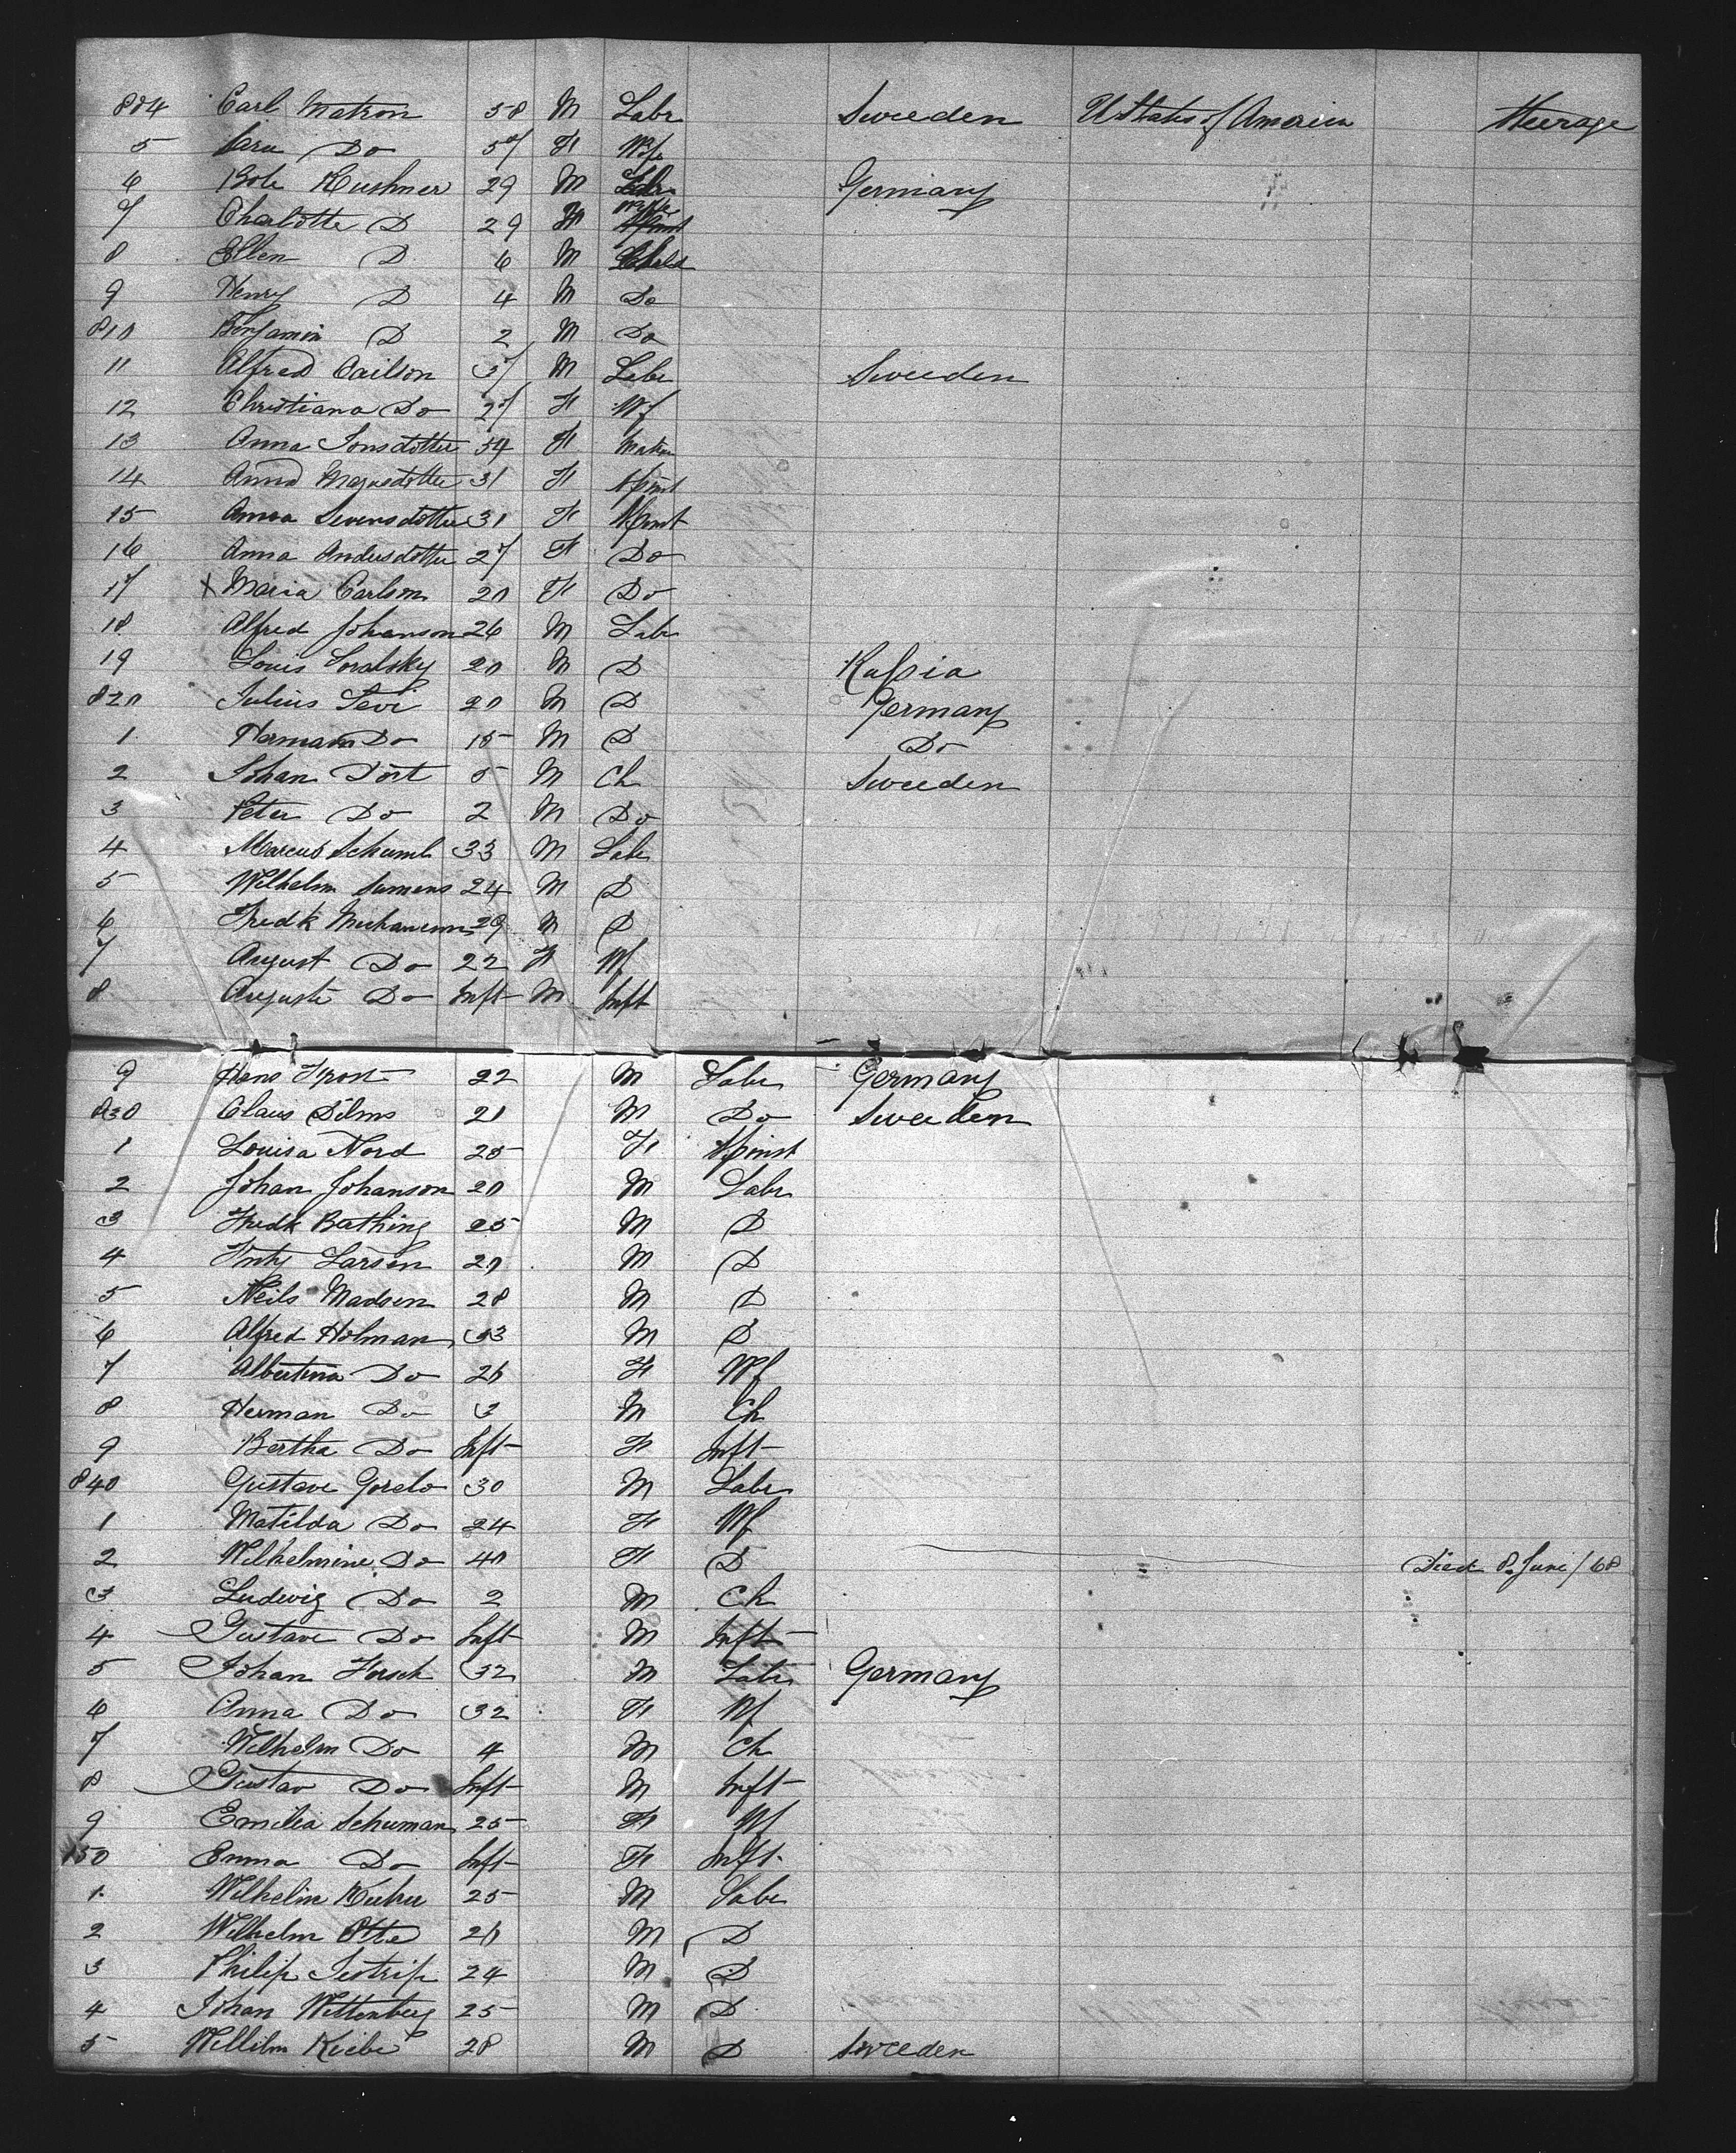 804 Carl Matson 58 M Labr Sweeden U States of America Steerage
5 Sara Do 57 F Wife
6 Bole Kushner 29 M Labr Germany
7 Charlotte D 29 F Wife
8 Ellen D 6 M Child
9 Henry D 4 M Do
810 Benjamin D 2 M Do
11 Alfred Carlson 37 M Labr Sweeden
12 Christiana Do 27 F Wf
13 Anna Jonsdotter 54 F Matron
14 Anna Magnsdotter 31 F Spinst
15 Anna Svensdotter 31 F Spinst
16 Anna Andersdotter 27 F Do
17 X Maria Carlson 20 F Do
18 Alfred Johanson 26 M Labr
19 Louis 20 M D Russia
820 Julius Levi 20 M D Germany
1 Herman Do 15 M D Do
2 Johan Dort 5 M Ch Sweeden
3 Peter Do 2 M Do
4 Marcus 33 M Labr
5 Wilhelm 24 M D
6 Fredk 29 M D
7 August Do 22 F Wf
8 Auguste Do Inft M Inft
9 Hans Frost 22 M Labr Germany
830 Claus Dilms 21 M Do Sweeden
1 Louisa Nord 25 F Spinst
2 Johan Johanson 20 M Labr
3 Fredk Bathing 25 M D
4 Fritz Larsen 20 M D
5 Neils Madsen 28 M D
6 Alfred Holman 33 M D
7 Albertina Do 26 F Wf
8 Herman Do 3 M Ch
9 Bertha Do Inft F Inft
840 Gustave Gorelo 30 M Labr
1 Matilda Do 24 F Wf
2 Wilhelmine Do 40 F D Died 8 June/68
3 Ludwig Do 2 M Ch
4 Gustave Do Inft M Inft
5 Johan Horsch 32 M Labr Germany
6 Anna Do 32 F Wf
7 Wilhelm Do 4 M Ch
8 Gustav Do Inft M Inft
9 Emilia Schuman 25 F Wf
850 Emma Do Inft F Inft
1 Wilhelm 25 M Labr
2 Wilhelm Otte 26 M D
3 Philip 24 M D
4 Johan Wittenberg 25 M D
5 Willilm Kiebe 28 M D Sweeden